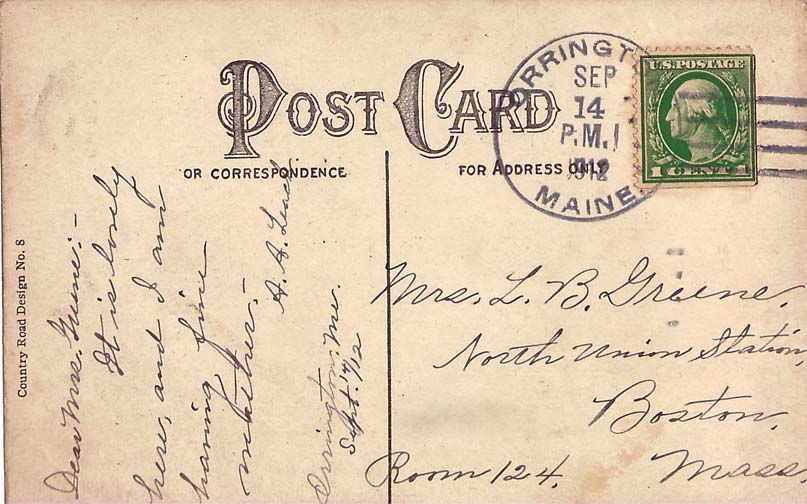 POST CARD
OR CORRESPONDENCE
FOR ADDRESS ONLY
ORRINGT
SEP
14
P.M.
1912
MAINE
U.S. POSTAGE
1 CENT 1
Country Road Design No. 8
Dear Mrs. Greene:-
It is lovely
here, and I am
having fine
weather.-
A. A.
Orrington, Me.
Sept. 14/12
Mrs. L. B. Greene,
North Union Station,
Boston,
Room 124. Mass.